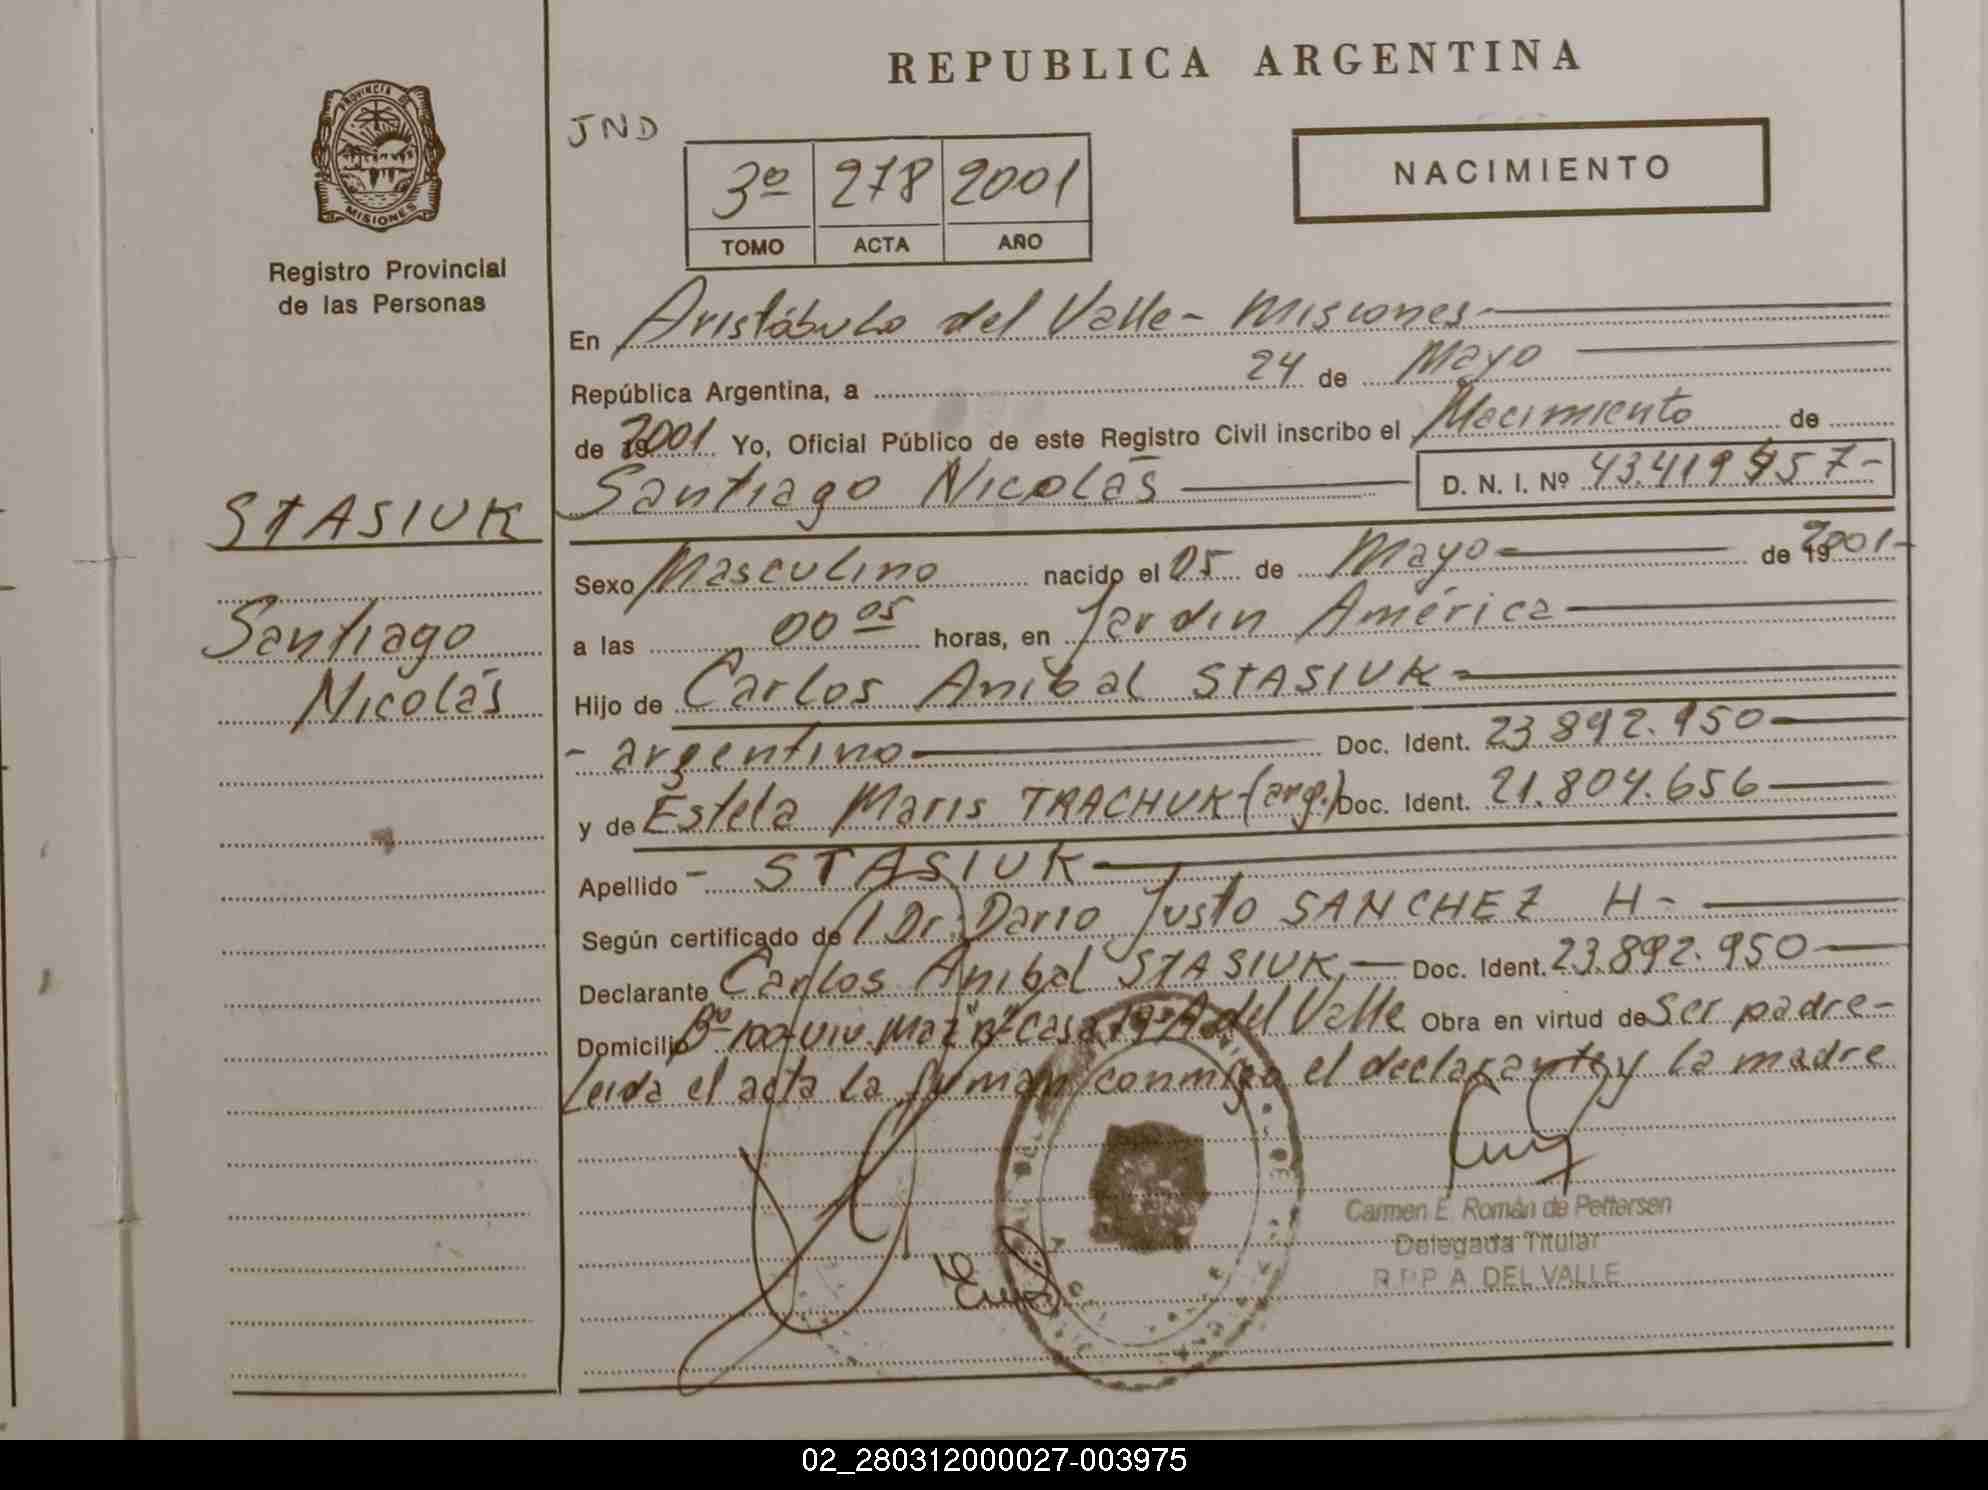 REPUBLICA ARGENTINA
PROVINCIA DE
MISIONES
Registro Provincial
de las Personas
JND
3º 278 2001
TOMO ACTA AÑO
NACIMIENTO
En Aristóbulo del Valle - Misiones
República Argentina, a 24 de Mayo
de 2001 Yo, Oficial Público de este Registro Civil inscribo el Nacimiento de
Santiago Nicolás D. N. I. Nº 43.419.457-
STASIUK
Santiago
Nicolás
Sexo Masculino nacido el 05 de Mayo de 19 2001-
a las 00 05 horas, en Jardin América
Hijo de Carlos Anibal STASIUK-
- argentino Doc. Ident. 23.892.950
y de Estela Maris TRACHUK (arg.) Doc. Ident. 21.804.656
Apellido - STASIUK
Según certificado de Dr. Dario Justo SANCHEZ H-
Declarante Carlos Anibal STASIUK, Doc. Ident. 23.892.950
Domicilio Bº 100 viv. Maz "B" Casa 19-A. del Valle Obra en virtud de Ser padre-
Leida el acta la firman conmigo el declarante y la madre
Carmen E. Román de Pettersen
Delegada Titular
R.P.P. A. DEL VALLE
02_280312000027-003975